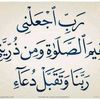 رَبِّ ٱجْعَلْنِى
مُقِيمَ ٱلصَّلَوٰةِ وَمِن ذُرِّيَّتِى
رَبَّنَا وَتَقَبَّلْ دُعَآءِ